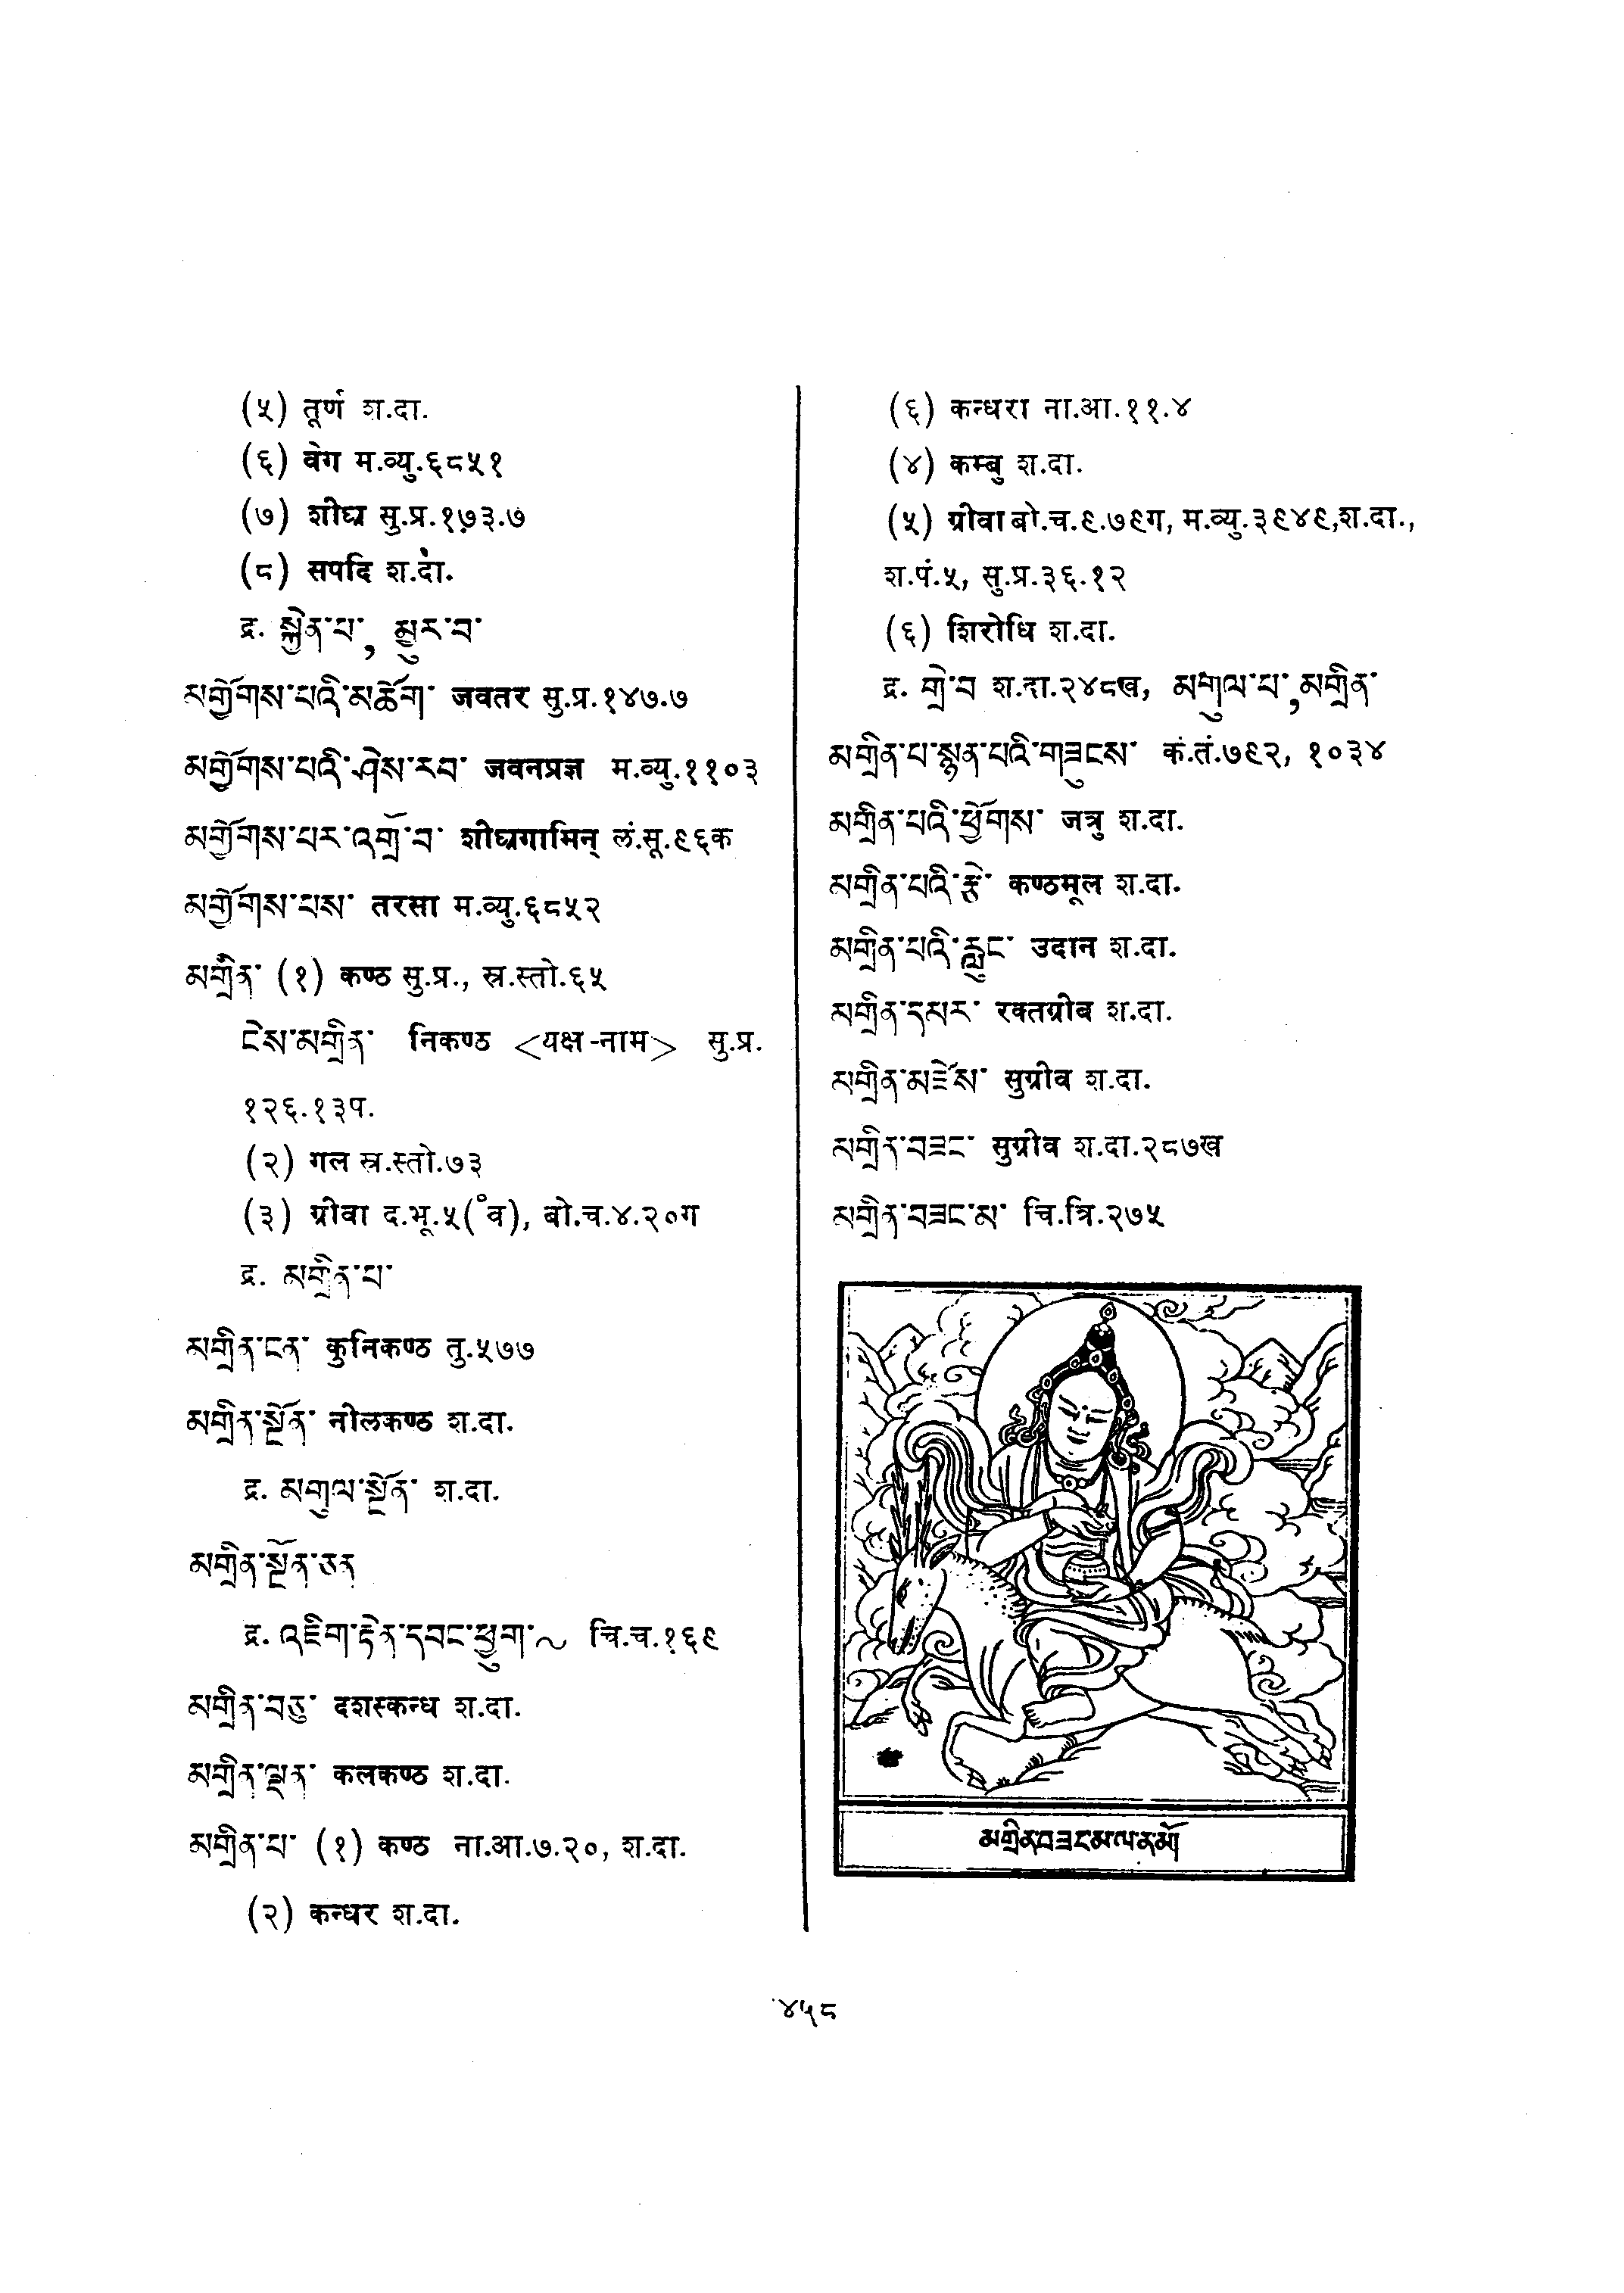 (५) तूर्ण श.दा.
(६) वेग म.व्यु.६८५१
(७) शीघ्र सु.प्र.१७३.७
(८) सपदि श.दा.
द्र. སྐྱེན་པ་, མྱུར་བ་
མགྱོགས་པའི་མཆོག་ जवतर सु.प्र.१४७.७
མགྱོགས་པའི་ཤེས་རབ་ जवनप्रज्ञ म.व्यु.११०३
མགྱོགས་པར་འགྲོ་བ་ शीघ्रगामिन् लं.सू.९६क
མགྱོགས་པས་ तरसा म.व्यु.६८५२
མགྲིན་ (१) कण्ठ सु.प्र., स्र.स्तो.६५
ངེས་མགྲིན་ निकण्ठ <यक्ष-नाम> सु.प्र.
१२६.१३प.
(२) गल स्र.स्तो.७३
(३) ग्रीवा द.भू.५(॰व), बो.च.४.२०ग
द्र. མགྲིན་པ་
མགྲིན་ངན་ कुनिकण्ठ तु.५७७
མགྲིན་སྔོན་ नीलकण्ठ श.दा.
द्र. མགུལ་སྔོན་ श.दा.
མགྲིན་སྔོན་ཅན
द्र. འཇིག་རྟེན་དབང་ཕྱུག་~ चि.च.१६९
མགྲིན་བཅུ་ दशस्कन्ध श.दा.
མགྲིན་ལྡན་ कलकण्ठ श.दा.
མགྲིན་པ་ (१) कण्ठ ना.आ.७.२०, श.दा.
(२) कन्धर श.दा.
(६) कन्धरा ना.आ.११.४
(४) कम्बु श.दा.
(५) ग्रीवा बो.च.९.७९ग, म.व्यु.३९४९,श.दा.,
श.पं.५, सु.प्र.३६.१२
(६) शिरोधि श.दा.
द्र. གྲེ་བ श.दा.२४८ख, མགུལ་པ་,མགྲིན་
མགྲིན་པ་སྙན་པའི་གཟུངས་ कं.तं.७९२, १०३४
མགྲིན་པའི་ཕྱོགས་ जत्रु श.दा.
མགྲིན་པའི་རྩེ་ कण्ठमूल श.दा.
མགྲིན་པའི་རླུང་ उदान श.दा.
མགྲིན་དམར་ रक्तग्रीब श.दा.
མགྲིན་མཛེས་ सुग्रीव श.दा.
མགྲིན་བཟང་ सुग्रीव श.दा.२८७ख
མགྲིན་བཟང་མ་ चि.त्रि.२७५
མགྲིནབཟངམལནམོ
४५८